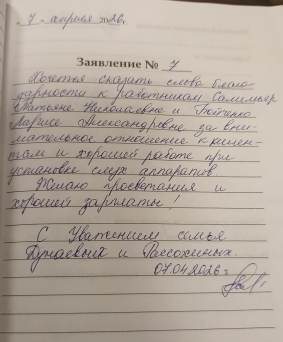 "7" апреля 2026г.
Заявление № 7
Хочется сказать слова благо-
дарности к работникам
Татьяне Николаевне и
Ларисе Александровне за вни-
мательное отношение к клиен-
там и хорошей работе при
установке слух аппаратов.
Желаю процветания и
хорошей зарплаты!
С Уважением семья
Дунаевых и Рассохиных.
07.04.2026г